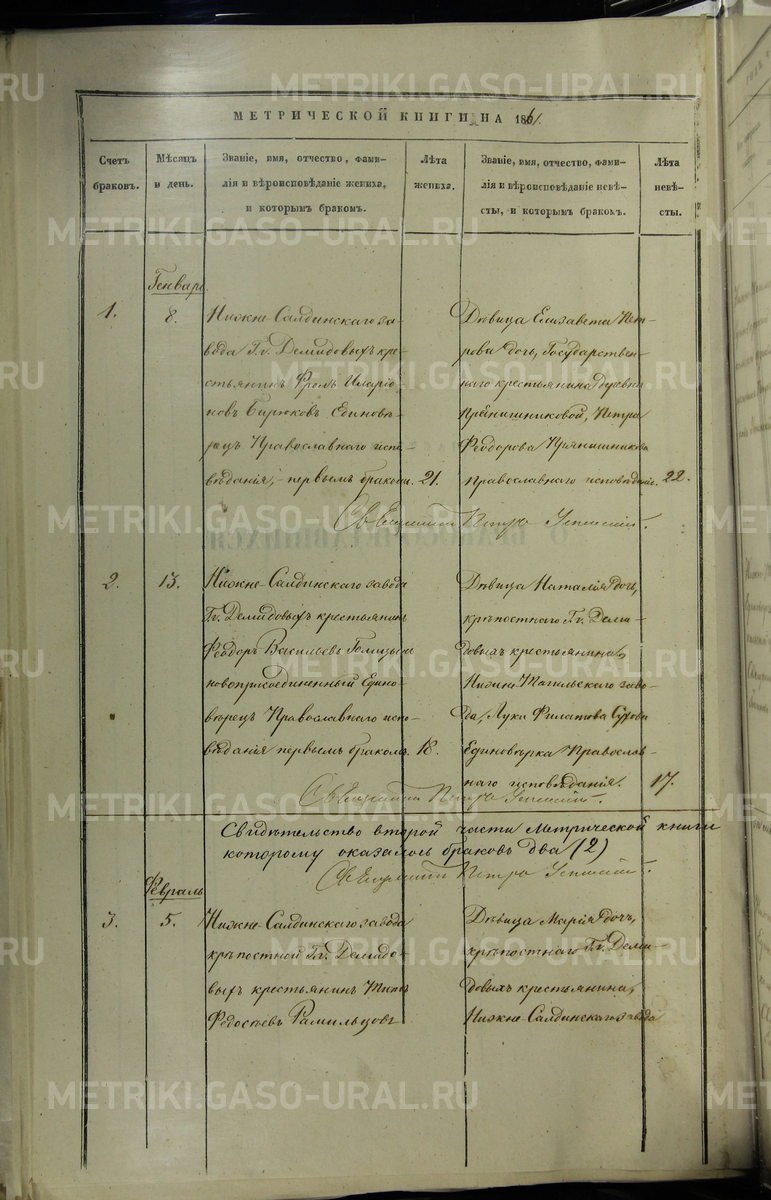 МЕТРИЧЕСКОЙ КНИГИ НА 1861.
Счетъ
браковъ.
Мѣсяцъ
и день.
Званіе, имя, отчество, фами-
лія и вѣроисповѣданіе жениха,
и которымъ бракомъ.
Лѣта
жениха.
Званіе, имя, отчество, фами-
лія и вѣроисповѣданіе невѣ-
сты, и которымъ бракомъ.
Лѣта
невѣ-
сты.
Генварь
1.
8.
Нижне-Салдинскаго за-
вода Гг. Демидовыхъ кре-
стьянинъ Фролъ Иларіо-
новъ Бирюковъ Единовѣ-
рецъ Православнаго испо-
вѣданія, первымъ бракомъ.
21.
Дѣвица Елизавета Пет-
рова дочь, Государствен-
наго крестьянина деревни
Прянишниковой, Петра
Феодорова Прянишникова
православнаго исповѣданія.
22.
Петръ Успенскій.
2.
13.
Нижне-Салдинскаго завода
Гг. Демидовыхъ крестьянинъ
Феодоръ Васильевъ Голицынъ
новоприсоединенный Едино-
вѣрецъ Православнаго испо-
вѣданія первымъ бракомъ.
18.
Дѣвица Наталія дочь,
крѣпостнаго Гг. Деми-
довыхъ крестьянина,
Нижне-Тагильскаго заво-
да, Луки Филатова
Единовѣрка Православ-
наго исповѣданія.
17.
Петръ Успенскій.
Свидѣтельство второй части Метрической книги
которому оказалось браковъ два (2)
Петръ Успенскій.
Февраль
3.
5.
Нижне-Салдинскаго завода
крѣпостной Гг. Демидо-
выхъ крестьянинъ
Дѣвица Марія дочь,
крѣпостнаго Гг. Деми-
довыхъ крестьянина,
Нижне-Салдинскаго завода
METRIKI.GASO-URAL.RU